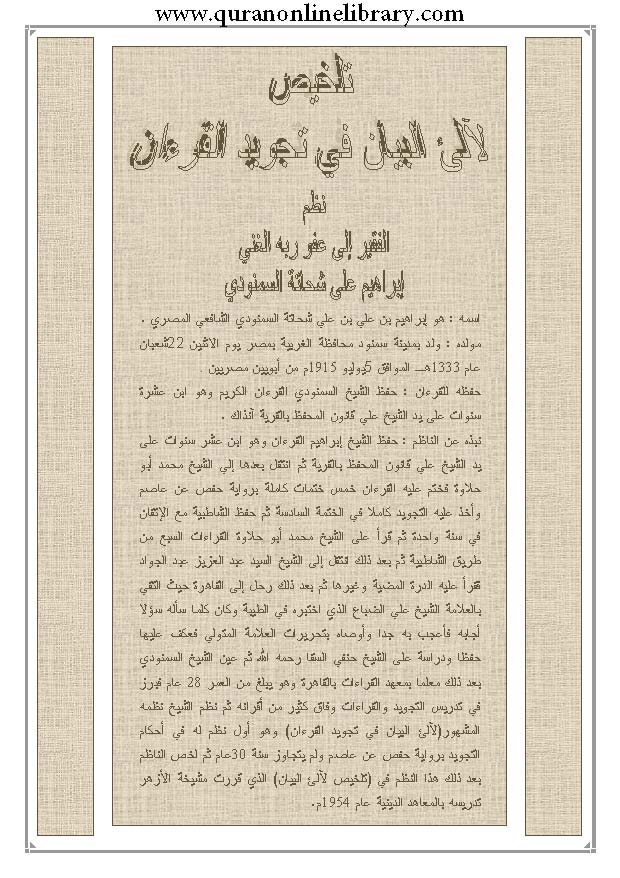 www.quranonlinelibrary.com
تلخيص
لآلئ البيان في تجويد القرءان
نظم
الفقير إلى عفو ربه الغني
إبراهيم علي شحاتة السمنودي
اسمه : هو إبراهيم بن علي بن علي شحاتة السمنودي الشافعي المصري .
مولده : ولد بمدينة سمنود محافظة الغربية بمصر يوم الاثنين 22شعبان
عام 1333هـ الموافق 5يوليو 1915م من أبويين مصريين .
حفظه للقرءان : حفظ الشيخ السمنودي القرءان الكريم وهو ابن عشرة
سنوات على يد الشيخ علي قانون المحفظ بالقرية آنذاك .
نبذه عن الناظم : حفظ الشيخ إبراهيم القرءان وهو ابن عشر سنوات على
يد الشيخ علي قانون المحفظ بالقرية ثم انتقل بعدها إلي الشيخ محمد أبو
حلاوة فختم عليه القرءان خمس ختمات كاملة برواية حفص عن عاصم
وأخذ عليه التجويد كاملا في الختمة السادسة ثم حفظ الشاطبية مع الإتقان
في سنة واحدة ثم قرأ على الشيخ محمد أبو حلاوة القراءات السبع من
طريق الشاطبية ثم بعد ذلك انتقل إلى الشيخ السيد عبد العزيز عبد الجواد
فقرأ عليه الدرة المضية وغيرها ثم بعد ذلك رحل إلى القاهرة حيث التقي
بالعلامة الشيخ علي الضباع الذي اختبره في الطيبة وكان كلما سأله سؤلا
أجابه فأعجب به جدا وأوصاه بتحريرات العلامة المتولي فعكف عليها
حفظا ودراسة على الشيخ حنفي السقا رحمه الله ثم عين الشيخ السمنودي
بعد ذلك معلما بمعهد القراءات بالقاهرة وهو يبلغ من العمر 28 عام فبرز
في تدريس التجويد والقراءات وفاق كثير من أقرانه ثم نظم الشيخ نظمه
المشهور(لآلئ البيان في تجويد القرءان) وهو أول نظم له في أحكام
التجويد برواية حفص عن عاصم ولم يتجاوز سنة 30عام ثم لخص الناظم
بعد ذلك هذا النظم في (تلخيص لآلئ البيان) الذي قررت مشيخة الأزهر
تدريسه بالمعاهد الدينية عام 1954م.